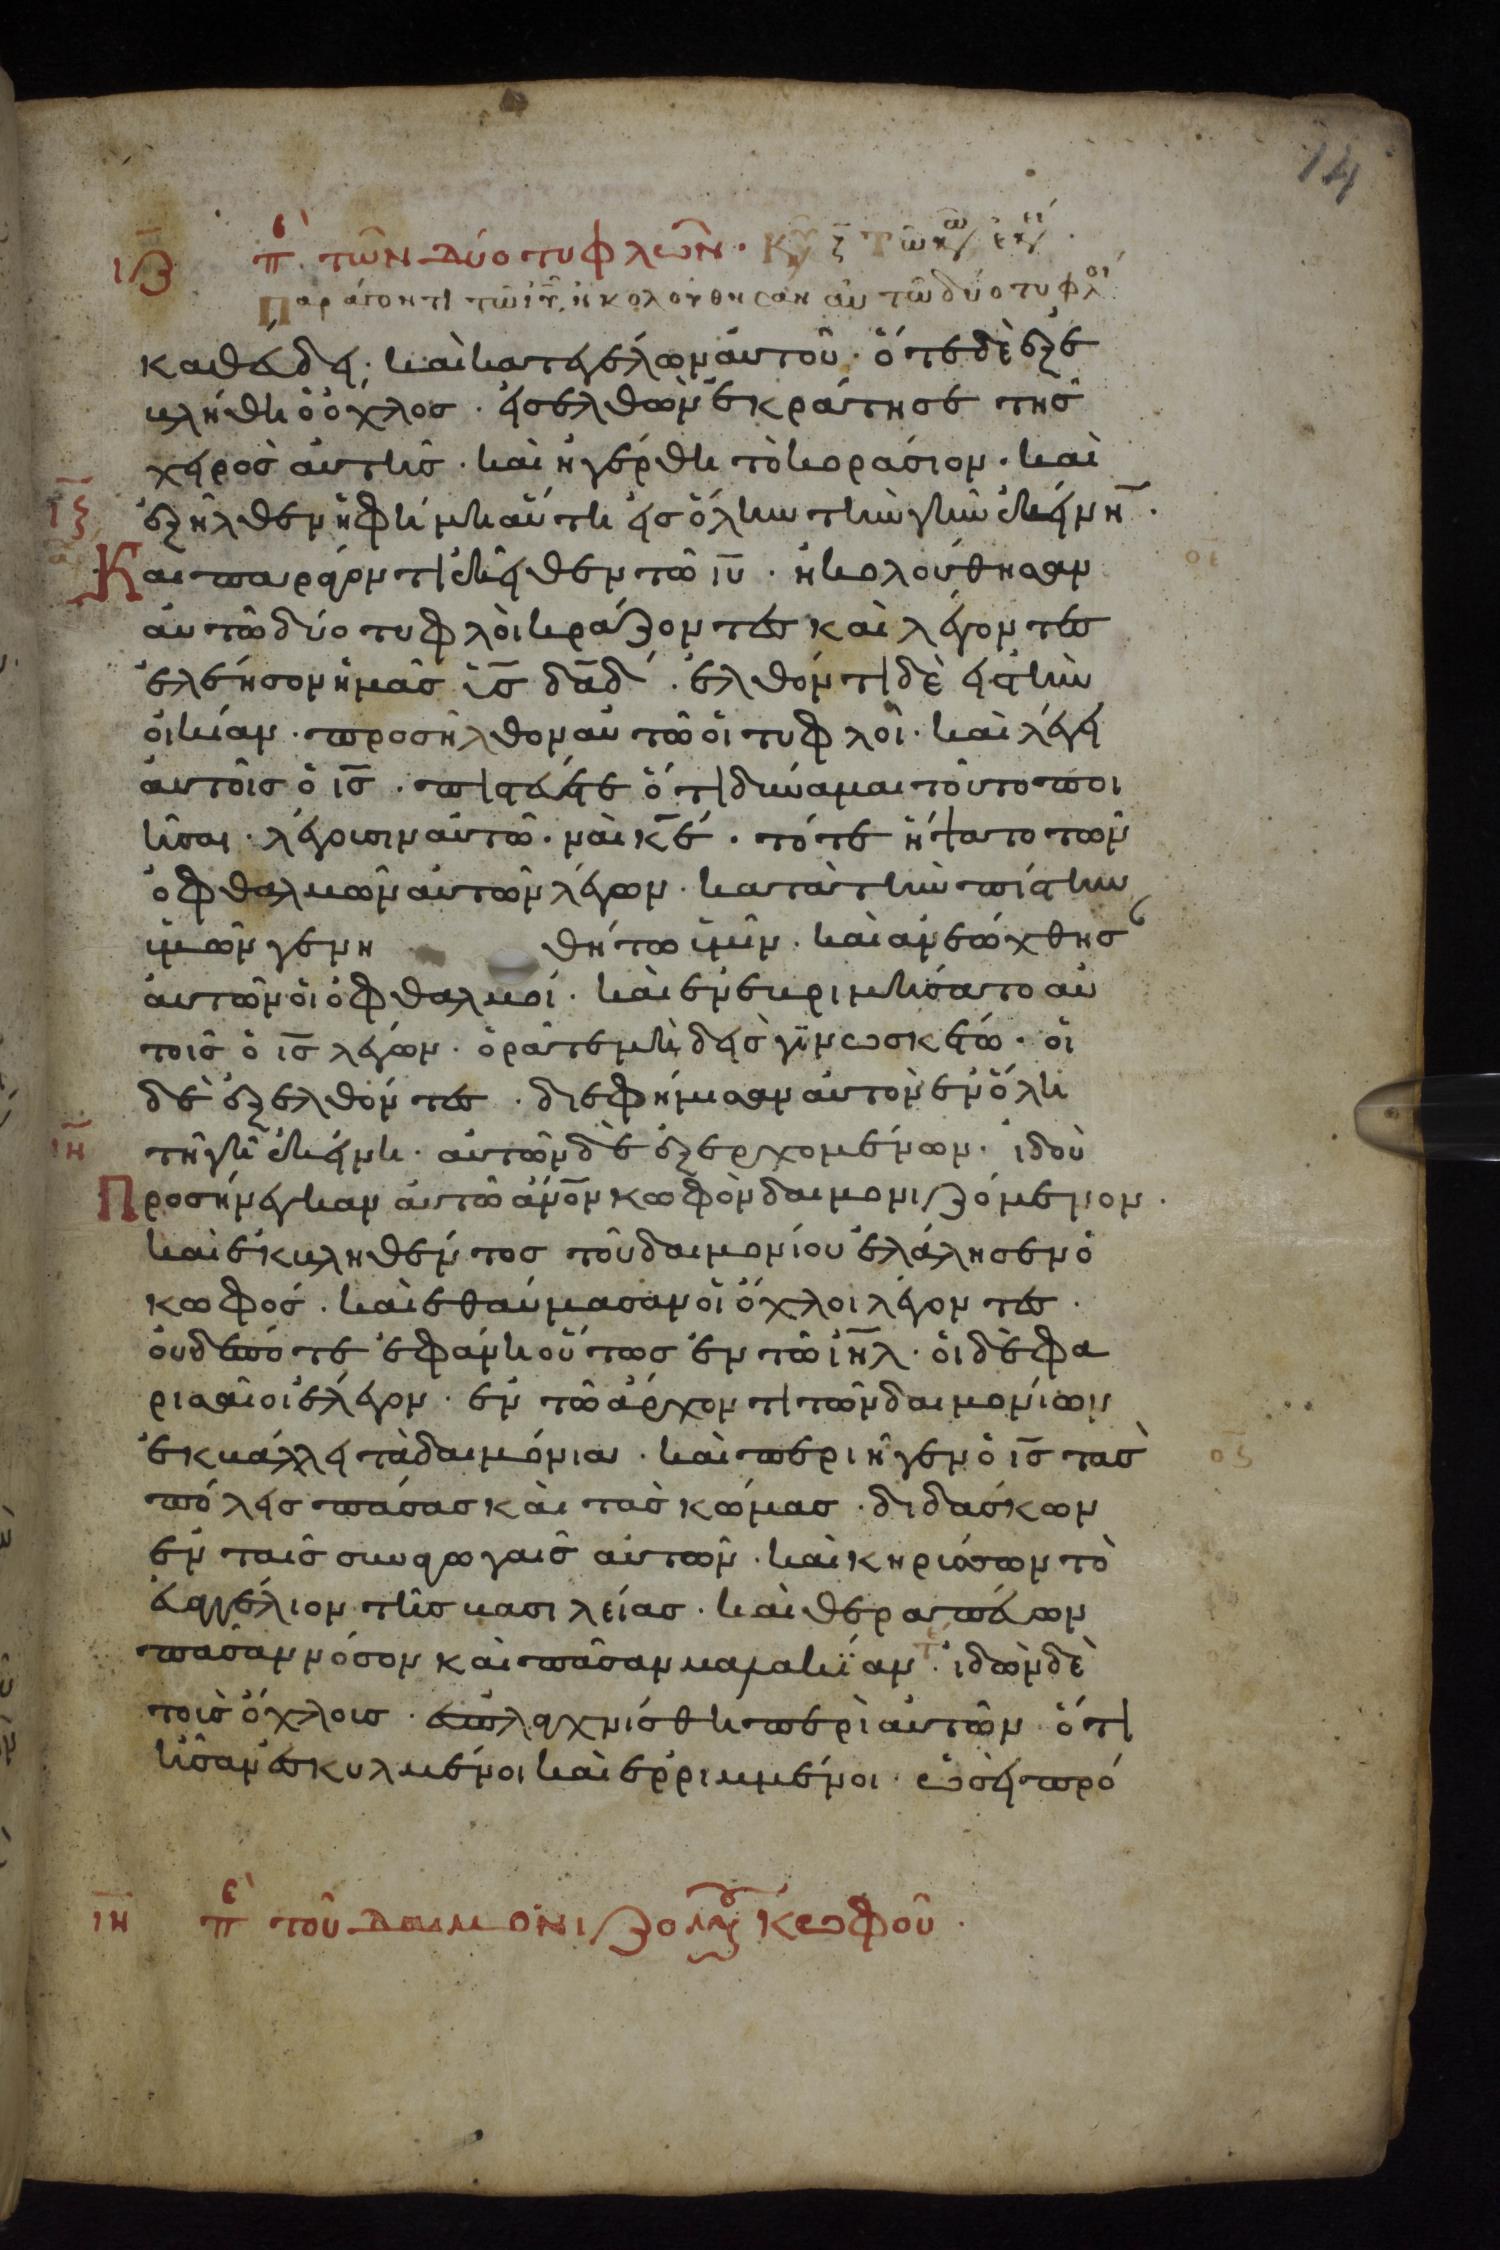 14
ιζ πε τῶν δύο τυφλῶν. Κυ ζ τῶν
παράγοντι τῶ ιυ, ἠκολούθησαν αὐτῶ δύο τυφλοί
καθεύδει· καὶ κατεγέλων αὐτοῦ· ὅτε δὲ ἐξε
βλήθη ὁ ὄχλος· εἰσελθὼν ἐκράτησε τῆς
χειρὸς αὐτῆς· καὶ ἠγέρθη τὸ κοράσιον· καὶ
ιζ ἐξῆλθεν ἡ φήμη αὕτη εἰς ὅλην τὴν γῆν ἐκείνη̅·
Και παράγοντι ἐκεῖθεν τῶ ιυ̅· ἠκολούθησαν οε
αὐτῶ δύο τυφλοὶ κράζοντες καὶ λέγοντες
ἐλέησον ἡμᾶς υἱ̅ὲ δα̅δ· ἐλθόντι δὲ εἰς τὴν
οἰκίαν· προσῆλθον αὐτῶ οἱ τυφλοὶ· καὶ λέγει
αὐτοῖς ὁ ις̅· πιστεύετε ὅτι δύναμαι τοῦτο ποι
ῆσαι· λέγουσιν αὐτῶ· ναὶ κ̅ε· τότε ἥψατο τῶν
ὀφθαλμῶν αὐτῶν λέγων· κατὰ τὴν πίστιν
ὑμῶν γενη θήτω ὑμῖν· καὶ ἀνεώχθησ
αὐτῶν οἱ ὀφθαλμοί· καὶ ἐνεβριμήσατο αὐ
τοῖς ὁ ις̅ λέγων· ὁρᾶτε μὴ δεὶς γινωσκέτω· οἱ
δὲ ἐξελθόντες· διεφήμισαν αὐτὸν ἐν ὅλη
ιη τῆ γῆ ἐκείνη· αὐτῶν δὲ ἐξερχομένων· ἰδοὺ
Προσήνεγκαν αὐτῶ ἄν̅ον κωφὸν δαιμονιζόμενον·
καὶ ἐκβληθέντος τοῦ δαιμονίου ἐλάλησεν ὁ
κωφός· καὶ ἐθαύμασαν οἱ ὄχλοι λέγοντες·
οὐδέποτε ἐφάνη οὕτως ἐν τῶ ιη̅λ· οἱ δὲ φα
ρισαῖοι ἔλεγον· ἐν τῶ ἄρχοντι τῶν δαιμονίων
ἐκβάλλει τὰ δαιμόνια· καὶ περιῆγεν ὁ ις̅ τὰς οζ
πόλεις πάσας καὶ τὰς κώμας· διδάσκων
ἐν ταῖς συναγωγαῖς αὐτῶν· καὶ κηρύσσων τὸ
εὐαγγέλιον τῆς βασιλείας· καὶ θεραπεύων
πᾶσαν νόσον καὶ πᾶσαν μαλακίαν· ἰδὼν δὲ
τοὶς ὄχλοις· εὐσπλαχνίσθη περὶ αὐτῶν ὅτι
ἦσαν ἐσκυλμένοι καὶ ἐρριμμένοι· ὡσεὶ πρό
ιη πε τοῦ δαιμονιζομένου κωφοῦ·